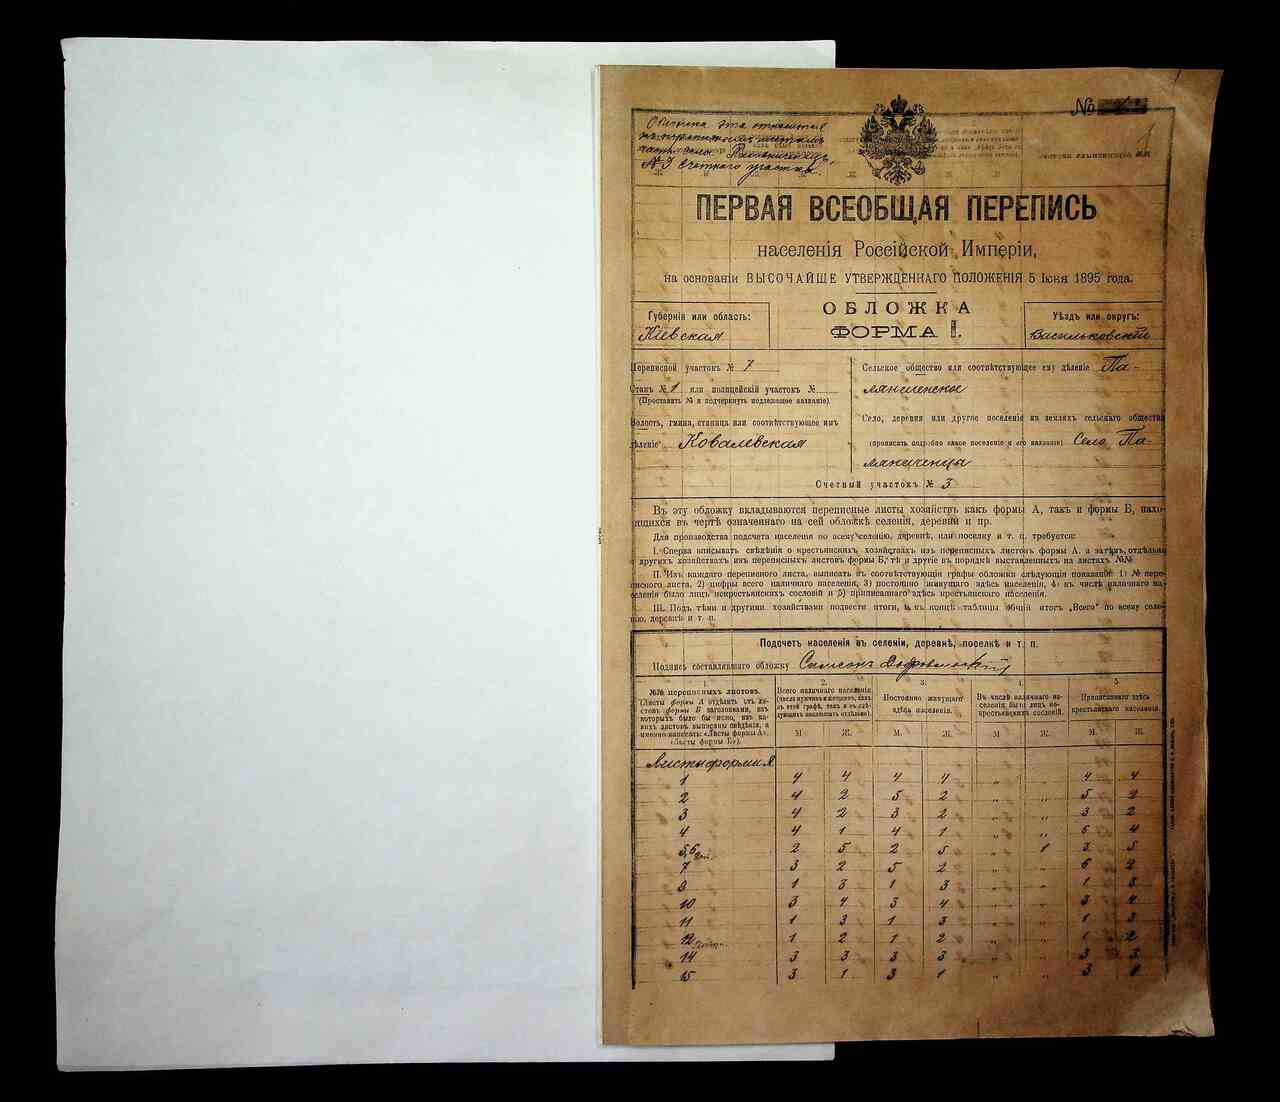 №
Обложка эта относится
№ 3 Счетного участка.
ПЕРВАЯ ВСЕОБЩАЯ ПЕРЕПИСЬ
населенія Россійской Имперіи,
на основаніи ВЫСОЧАЙШЕ УТВЕРЖДЕННАГО ПОЛОЖЕНІЯ 5 Іюня 1895 года.
ОБЛОЖКА
ФОРМА I.
Губернія или область:
Кіевская
Уѣздъ или округъ:
Васильковскій
Переписной участокъ № 7
Станъ № 1 или полицейскій участокъ №
(Проставить № и подчеркнуть подлежащее названіе).
Волость, гмина, станица или соотвѣтствующее имъ
дѣленіе Ковалевская
Сельское общество или соотвѣтствующее ему дѣленіе Па-
ляниченское
Село, деревня или другое поселеніе на земляхъ сельскаго общества
(прописать подробно самое поселеніе и его названіе) Село Па-
ляниченцы
Счетный участокъ № 3
Въ эту обложку вкладываются переписные листы хозяйствъ какъ формы А, такъ и формы Б, нахо-
дящихся въ чертѣ означеннаго на сей обложкѣ селенія, деревни и пр.
Для производства подсчета населенія по всему селенію, деревнѣ, или поселку и т. п. требуется:
I. Сперва вписывать свѣдѣнія о крестьянскихъ хозяйствахъ изъ переписныхъ листовъ формы А, а затѣмъ, отдѣльно
о другихъ хозяйствахъ изъ переписныхъ листовъ формы Б, тѣ и другіе въ порядкѣ выставленныхъ на листахъ №№
II. Изъ каждаго переписного листа, выписать въ соотвѣтствующія графы обложки слѣдующія показанія: 1) № пере-
писного листа, 2) цифры всего наличнаго населенія, 3) постоянно живущаго здѣсь населенія, 4) въ числѣ наличнаго на-
селенія было лицъ некрестьянскихъ сословій и 5) приписаннаго здѣсь крестьянскаго населенія.
III. Подъ тѣми и другими хозяйствами подвести итоги, а въ концѣ таблицы общій итогъ „Всего“ по всему селе-
нію, деревнѣ и т. п.
Подсчетъ населенія въ селеніи, деревнѣ, поселкѣ и т. п.
Подпись составлявшаго обложку Самсонъ
1. 2. 3. 4. 5.
№№ переписныхъ листовъ.
(Листы формы А отдѣлить отъ ли-
стовъ формы Б заголовками, изъ
которыхъ было бы ясно, изъ ка-
кихъ листовъ выписаны свѣдѣнія, а
именно написать: «Листы формы А»,
«Листы формы Б»).
Всего наличнаго населенія
(число мужчинъ и женщинъ, какъ
въ этой графѣ, такъ и въ слѣ-
дующихъ показывать отдѣльно).
Постоянно живущаго
здѣсь населенія.
Въ числѣ наличнаго на-
селенія было лицъ не-
крестьянскихъ сословій.
Приписаннаго здѣсь
крестьянскаго населенія.
М. Ж. М. Ж. М. Ж. М. Ж.
Листы формы А
1 4 4 4 4 „ „ 4 4
2 4 2 5 2 „ „ 5 2
3 4 2 3 2 „ „ 3 2
4 4 1 4 1 „ „ 6 4
5,6 2 5 2 5 „ 1 3 5
7 3 2 5 2 „ „ 6 2
9 1 3 1 3 „ „ 1 3
10 3 4 3 4 „ „ 3 4
11 1 3 1 3 „ „ 1 3
12 1 2 1 2 „ „ 1 2
14 3 3 3 3 „ „ 3 3
15 3 1 3 1 „ „ 3